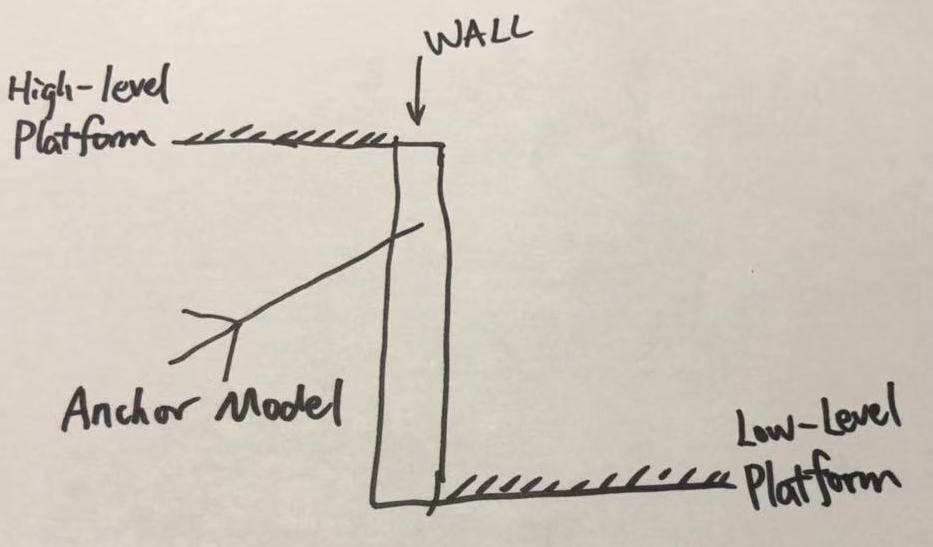 WALL
High-level
Platform
Anchor Model
Low-Level
Platform